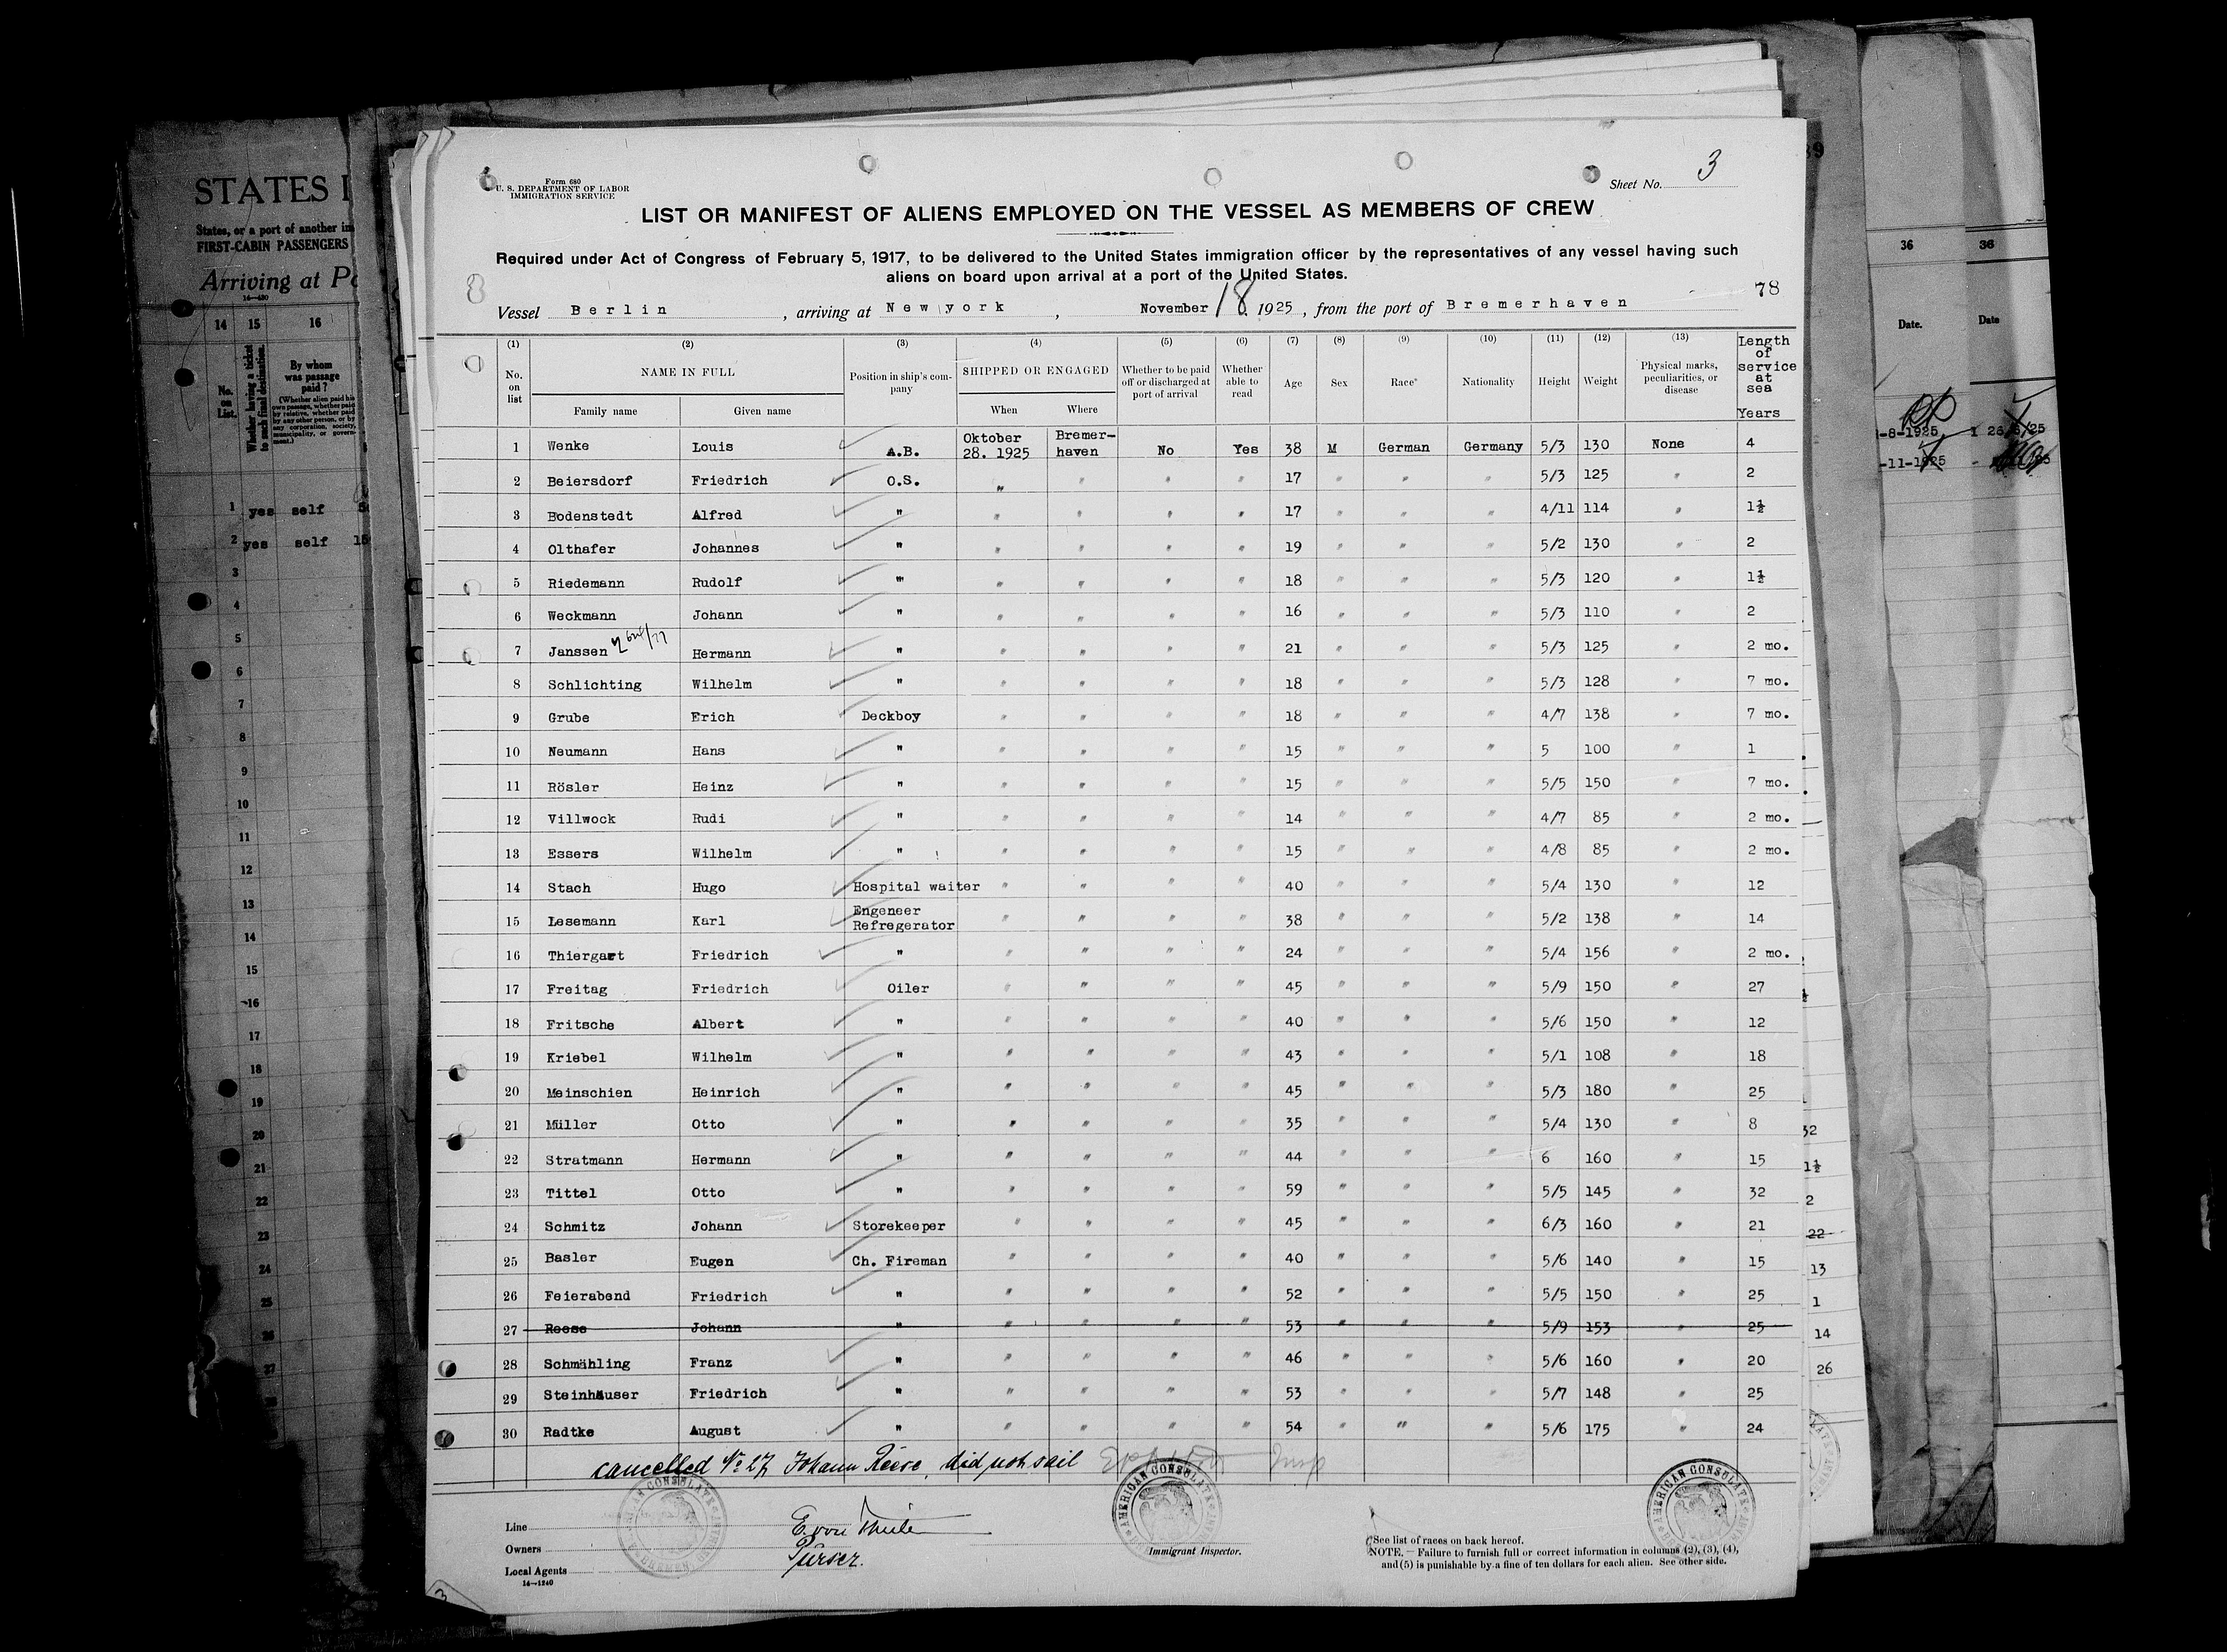 Form 680
U. S. DEPARTMENT OF LABOR
IMMIGRATION SERVICE
Sheet No. 3
LIST OR MANIFEST OF ALIENS EMPLOYED ON THE VESSEL AS MEMBERS OF CREW
Required under Act of Congress of February 5, 1917, to be delivered to the United States immigration officer by the representatives of any vessel having such
aliens on board upon arrival at a port of the United States.
78
Vessel Berlin, arriving at New york, November 18 1925, from the port of Bremerhaven
(1) (2) (3) (4) (5) (6) (7) (8) (9) (10) (11) (12) (13)
No. on list NAME IN FULL Family name Given name Position in ship's company SHIPPED OR ENGAGED When Where Whether to be paid off or discharged at port of arrival Whether able to read Age Sex Race* Nationality Height Weight Physical marks, peculiarities, or disease Length of service at sea Years
1 Wenke Louis A.B. Oktober 28. 1925 Bremerhaven No Yes 38 M German Germany 5/3 130 None 4
2 Beiersdorf Friedrich O.S. " " " " 17 " " " 5/3 125 " 2
3 Bodenstedt Alfred " " " " " 17 " " " 4/11 114 " 1½
4 Olthafer Johannes " " " " " 19 " " " 5/2 130 " 2
5 Riedemann Rudolf " " " " " 18 " " " 5/3 120 " 1½
6 Weckmann Johann " " " " " 16 " " " 5/3 110 " 2
7 Janssen Hermann " " " " " 21 " " " 5/3 125 " 2 mo.
8 Schlichting Wilhelm " " " " " 18 " " " 5/3 128 " 7 mo.
9 Grube Erich Deckboy " " " " 18 " " " 4/7 138 " 7 mo.
10 Neumann Hans " " " " " 15 " " " 5 100 " 1
11 Rösler Heinz " " " " " 15 " " " 5/5 150 " 7 mo.
12 Villwock Rudi " " " " " 14 " " " 4/7 85 " 2 mo.
13 Essers Wilhelm " " " " " 15 " " " 4/8 85 " 2 mo.
14 Stach Hugo Hospital waiter " " " " 40 " " " 5/4 130 " 12
15 Lesemann Karl Engeneer Refregerator " " " " 38 " " " 5/2 138 " 14
16 Thiergart Friedrich " " " " " 24 " " " 5/4 156 " 2 mo.
17 Freitag Friedrich Oiler " " " " 45 " " " 5/9 150 " 27
18 Fritsche Albert " " " " " 40 " " " 5/6 150 " 12
19 Kriebel Wilhelm " " " " " 43 " " " 5/1 108 " 18
20 Meinschien Heinrich " " " " " 45 " " " 5/3 180 " 25
21 Müller Otto " " " " " 35 " " " 5/4 130 " 8
22 Stratmann Hermann " " " " " 44 " " " 6 160 " 15
23 Tittel Otto " " " " " 59 " " " 5/5 145 " 32
24 Schmitz Johann Storekeeper " " " " 45 " " " 6/3 160 " 21
25 Basler Eugen Ch. Fireman " " " " 40 " " " 5/6 140 " 15
26 Feierabend Friedrich " " " " " 52 " " " 5/5 150 " 25
27 Reese Johann " " " " " 53 " " " 5/9 153 " 25
28 Schmähling Franz " " " " " 46 " " " 5/6 160 " 20
29 Steinhäuser Friedrich " " " " " 53 " " " 5/7 148 " 25
30 Radtke August " " " " " 54 " " " 5/6 175 " 24
cancelled No 27, Johann Reese, did not sail
Line
Owners
Purser.
Local Agents
14—1240
Immigrant Inspector.
AMERICAN CONSULATE
AMERICAN CONSULATE
AMERICAN CONSULATE
BREMEN
*See list of races on back hereof.
NOTE.—Failure to furnish full or correct information in columns (2), (3), (4),
and (5) is punishable by a fine of ten dollars for each alien. See other side.
3
STATES I
States, or a port of another
FIRST-CABIN PASSENGERS
Arriving at
14—430
14 15 16
No. on List.
Whether having a ticket to such final destination.
By whom was passage paid?
(Whether alien paid his own passage, whether paid by relative, whether paid by any other person, or by any corporation, society, municipality, or government.)
1 yes self
2 yes self
3
4
5
6
7
8
9
10
11
12
13
14
15
16
17
18
19
20
21
22
23
24
25
26
27
36 36
Date. Date
-8-1925
-11-1925
32
1½
2
22
13
1
14
26